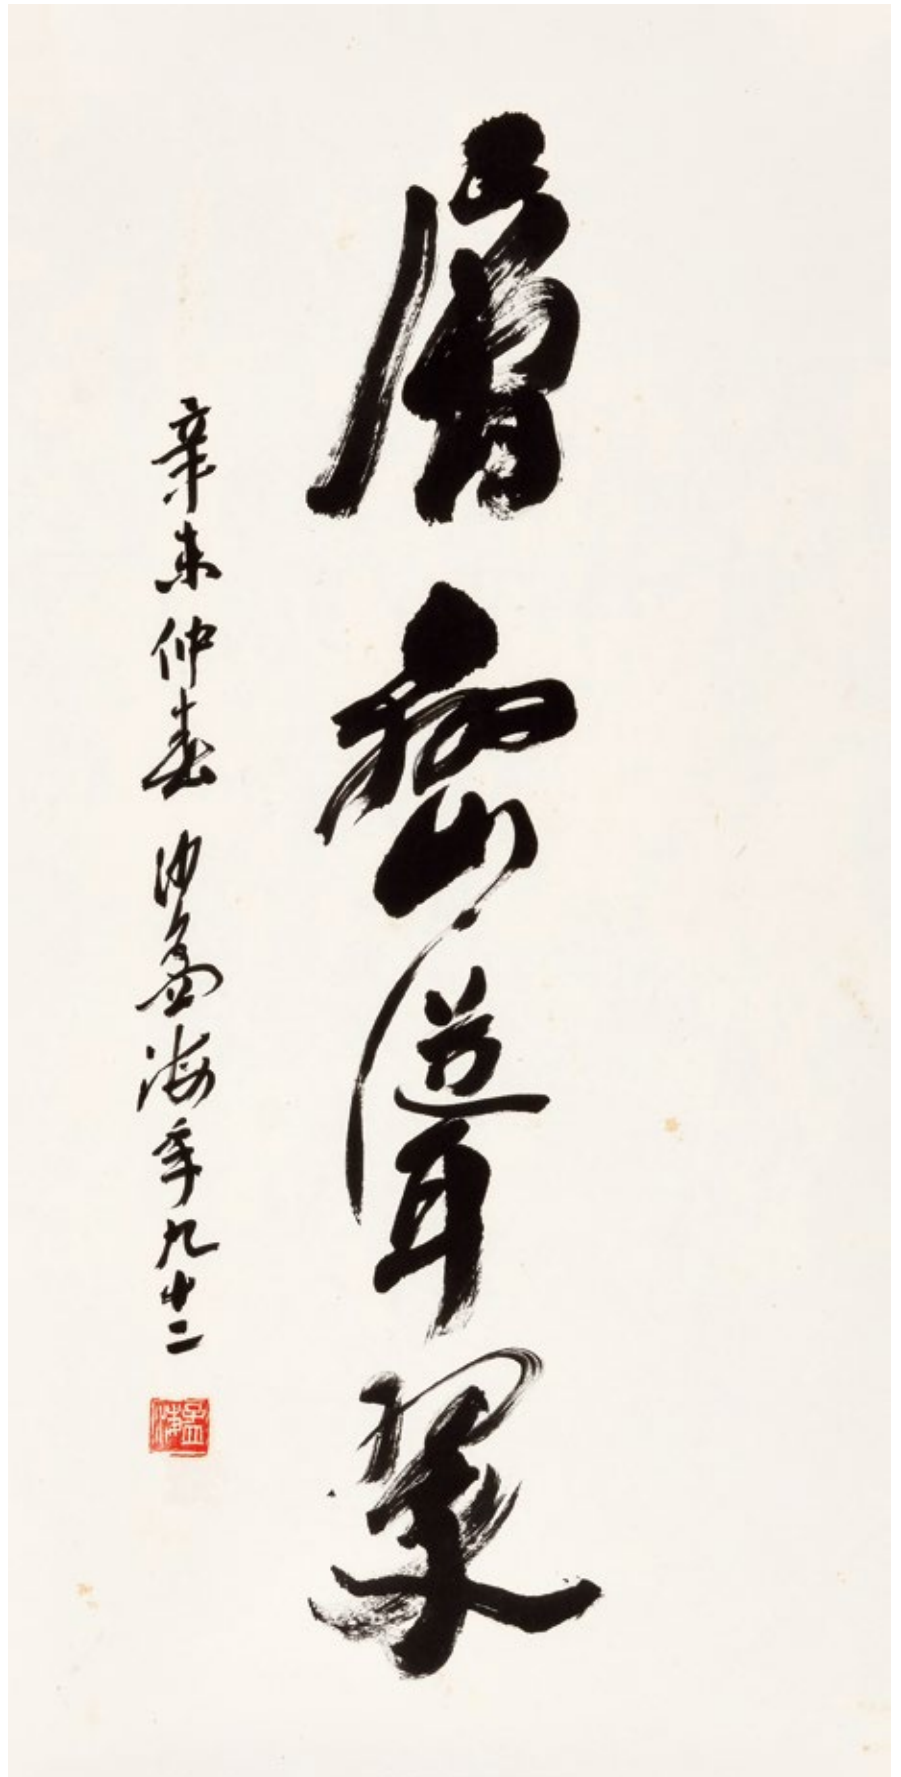 層巒聳翠
辛未仲春沙孟海年九十二
孟海